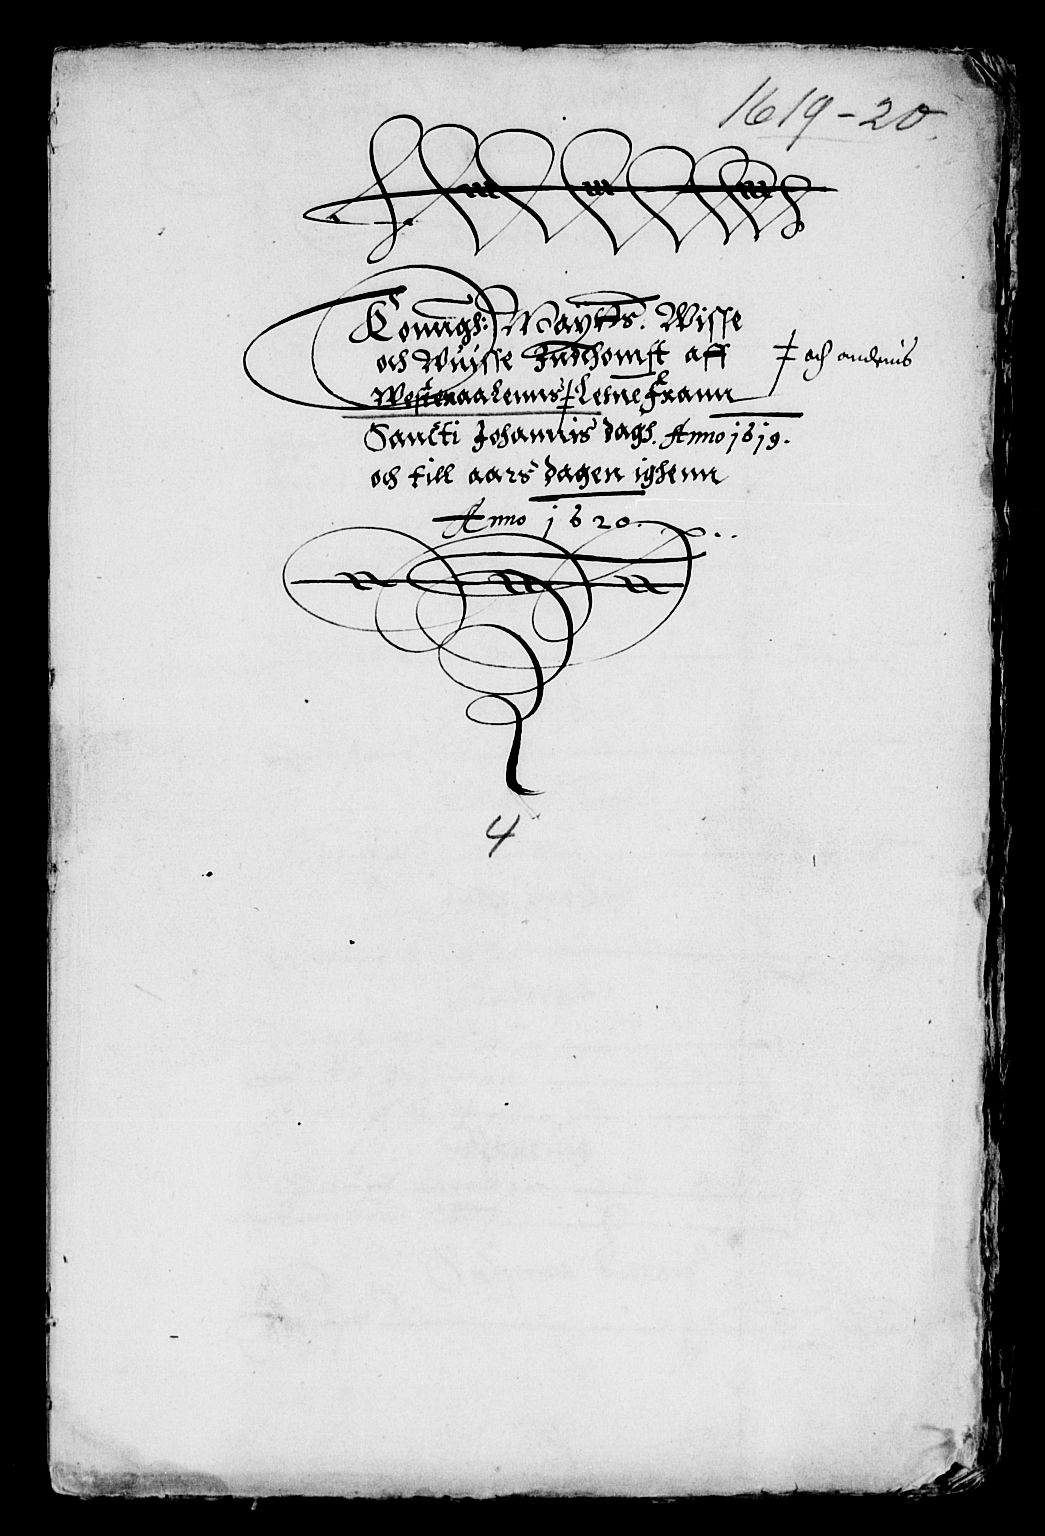 1619-20.
Konngh: Maytts. Wisse
och Wuisse Indkomst aff
‡ och andenis
Westeraalenns ‡ Lenne Frann
Sancti Johannis dagh. Anno 1619.
och till aars dagen ighenn
Anno 1620.
4